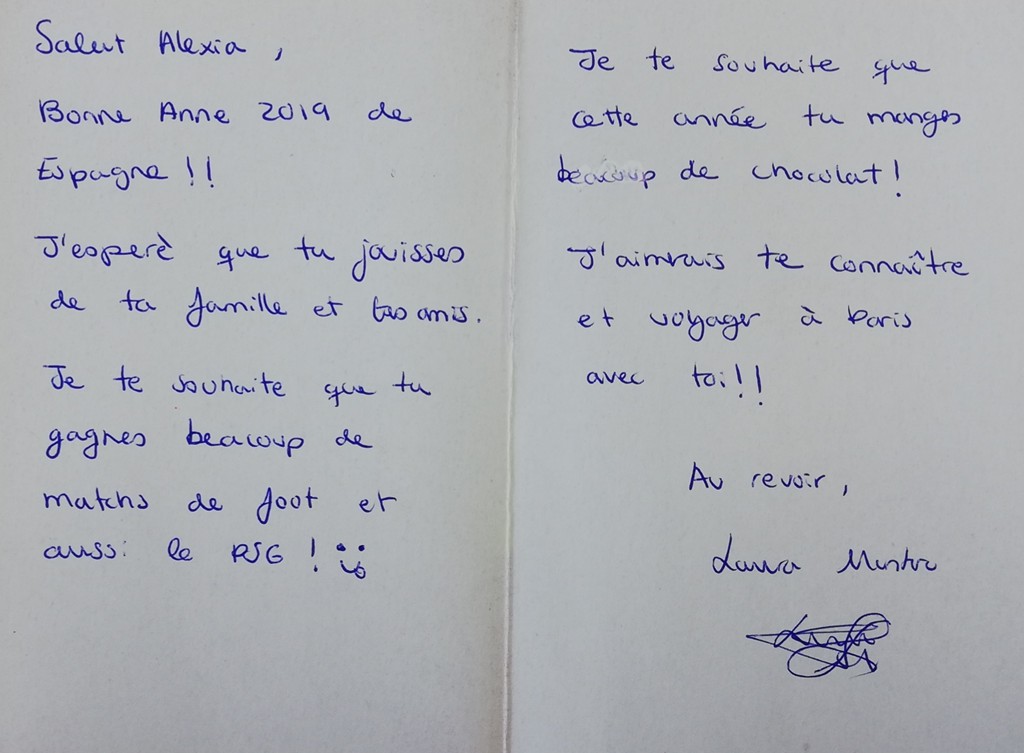 Salut Alexia ,
Bonne Anne 2019 de
Espagne !!
J'esperè que tu jouisses
de ta famille et tes amis.
Je te souhaite que tu
gagnes beacoup de
matchs de foot et
aussi le PSG !
Je te souhaite que
cette année tu manges
beacoup de chocolat !
J'aimrais te connaître
et voyager à Paris
avec toi!!
Au revoir ,
Laura